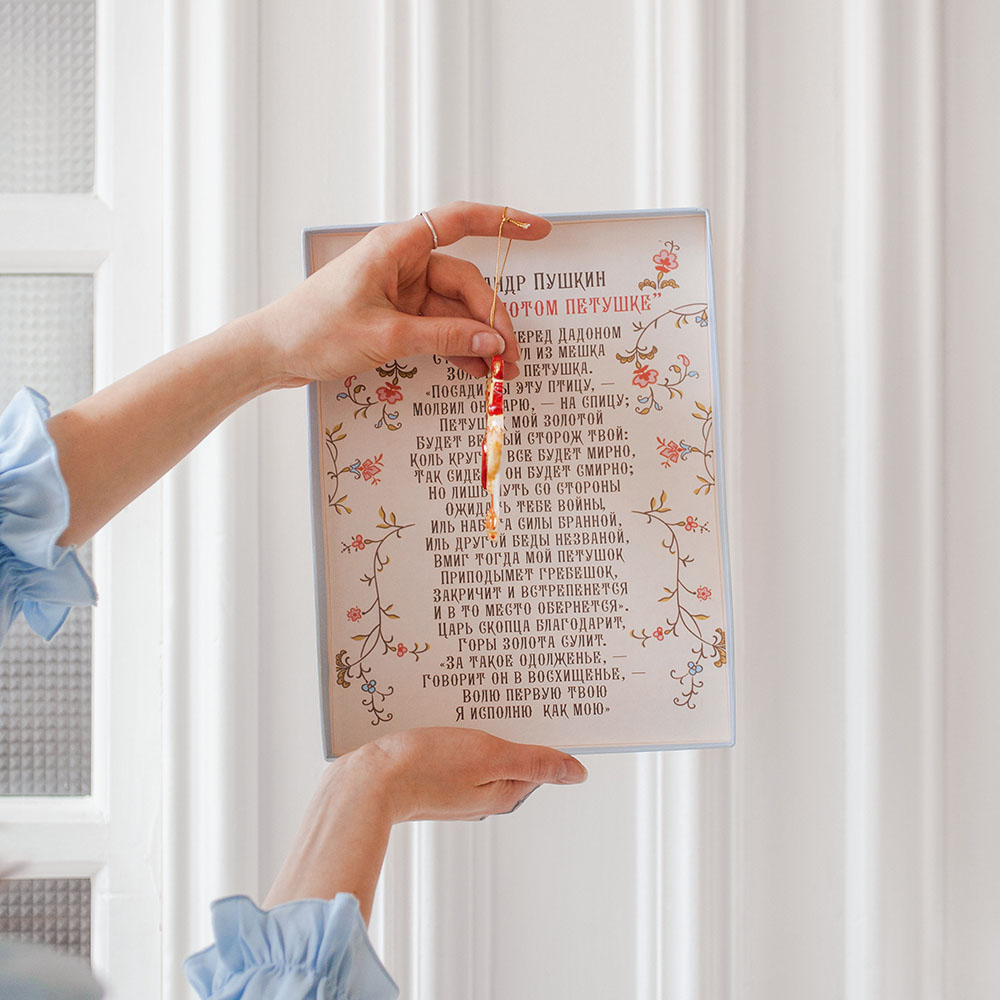 НДР ПУШКИН
ОТОМ ПЕТУШКЕ”
ЕРЕД ДАДОНОМ
УЛ ИЗ МЕШКА
ПЕТУШКА.
«ПОСАДИ Ы ЭТУ ПТИЦУ, —
МОЛВИЛ ОН АРЮ, — НА СПИЦУ;
ПЕТУШ МОЙ ЗОЛОТОЙ
БУДЕТ ВЕ ЫЙ СТОРОЖ ТВОЙ:
КОЛЬ КРУГ ВСЕ БУДЕТ МИРНО,
ТАК СИДЕ ОН БУДЕТ СМИРНО;
НО ЛИШ УТЬ СО СТОРОНЫ
ОЖИДА ТЕБЕ ВОЙНЫ,
ИЛЬ НАБ А СИЛЫ БРАННОЙ,
ИЛЬ ДРУГОЙ БЕДЫ НЕЗВАНОЙ,
ВМИГ ТОГДА МОЙ ПЕТУШОК
ПРИПОДЫМЕТ ГРЕБЕШОК,
ЗАКРИЧИТ И ВСТРЕПЕНЕТСЯ
И В ТО МЕСТО ОБЕРНЕТСЯ».
ЦАРЬ СКОПЦА БЛАГОДАРИТ,
ГОРЫ ЗОЛОТА СУЛИТ.
«ЗА ТАКОЕ ОДОЛЖЕНЬЕ, —
ГОВОРИТ ОН В ВОСХИЩЕНЬЕ, —
ВОЛЮ ПЕРВУЮ ТВОЮ
Я ИСПОЛНЮ КАК МОЮ»